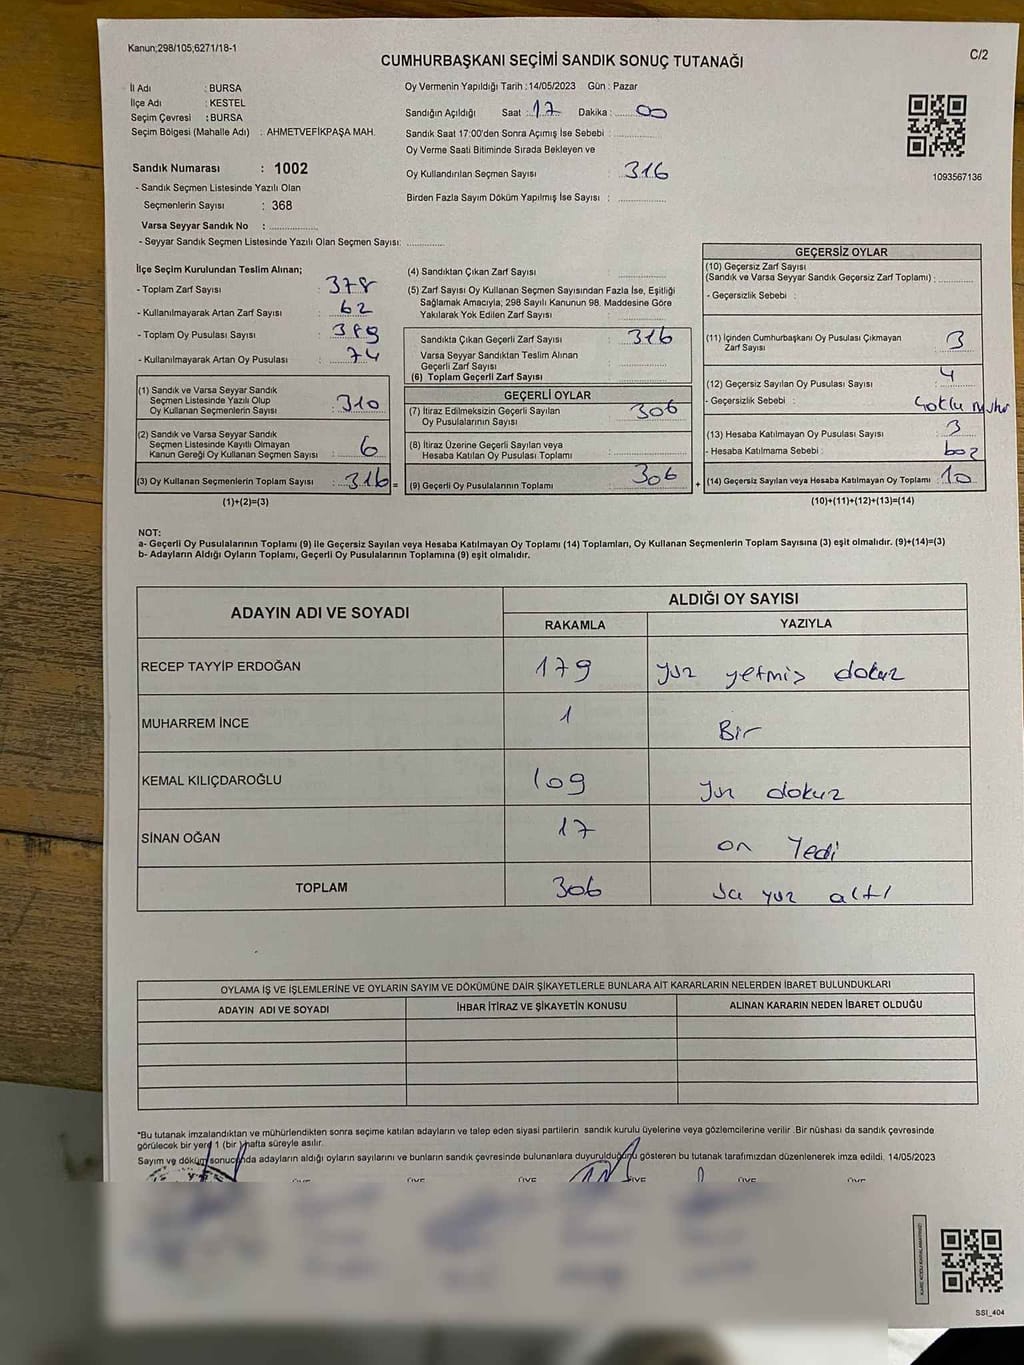 Kanun;298/105;6271/18-1
C/2
CUMHURBAŞKANI SEÇİMİ SANDIK SONUÇ TUTANAĞI
İl Adı : BURSA
İlçe Adı : KESTEL
Seçim Çevresi : BURSA
Seçim Bölgesi (Mahalle Adı) : AHMETVEFİKPAŞA MAH.
Sandık Numarası : 1002
- Sandık Seçmen Listesinde Yazılı Olan
Seçmenlerin Sayısı : 368
Varsa Seyyar Sandık No :
- Seyyar Sandık Seçmen Listesinde Yazılı Olan Seçmen Sayısı:
Oy Vermenin Yapıldığı Tarih : 14/05/2023 Gün : Pazar
Sandığın Açıldığı Saat : 17 Dakika : 00
Sandık Saat 17:00'den Sonra Açımış İse Sebebi :
Oy Verme Saati Bitiminde Sırada Bekleyen ve
Oy Kullandırılan Seçmen Sayısı : 316
Birden Fazla Sayım Döküm Yapılmış İse Sayısı :
1093567136
İlçe Seçim Kurulundan Teslim Alınan;
- Toplam Zarf Sayısı : 378
- Kullanılmayarak Artan Zarf Sayısı : 62
- Toplam Oy Pusulası Sayısı :
- Kullanılmayarak Artan Oy Pusulası : 74
(1) Sandık ve Varsa Seyyar Sandık
Seçmen Listesinde Yazılı Olup
Oy Kullanan Seçmenlerin Sayısı : 310
(2) Sandık ve Varsa Seyyar Sandık
Seçmen Listesinde Kayıtlı Olmayan
Kanun Gereği Oy Kullanan Seçmen Sayısı : 6
(3) Oy Kullanan Seçmenlerin Toplam Sayısı : 316 =
(1)+(2)=(3)
(4) Sandıktan Çıkan Zarf Sayısı :
(5) Zarf Sayısı Oy Kullanan Seçmen Sayısından Fazla İse, Eşitliği
Sağlamak Amacıyla; 298 Sayılı Kanunun 98. Maddesine Göre
Yakılarak Yok Edilen Zarf Sayısı :
Sandıkta Çıkan Geçerli Zarf Sayısı : 316
Varsa Seyyar Sandıktan Teslim Alınan
Geçerli Zarf Sayısı :
(6) Toplam Geçerli Zarf Sayısı :
GEÇERLİ OYLAR
(7) İtiraz Edilmeksizin Geçerli Sayılan
Oy Pusulalarının Sayısı : 306
(8) İtiraz Üzerine Geçerli Sayılan veya
Hesaba Katılan Oy Pusulası Toplamı :
(9) Geçerli Oy Pusulalarının Toplamı : 306 +
GEÇERSİZ OYLAR
(10) Geçersiz Zarf Sayısı
(Sandık ve Varsa Seyyar Sandık Geçersiz Zarf Toplamı) :
- Geçersizlik Sebebi :
(11) İçinden Cumhurbaşkanı Oy Pusulası Çıkmayan
Zarf Sayısı : 3
(12) Geçersiz Sayılan Oy Pusulası Sayısı : 4
- Geçersizlik Sebebi : Çoklu mühür
(13) Hesaba Katılmayan Oy Pusulası Sayısı : 3
- Hesaba Katılmama Sebebi : boz
(14) Geçersiz Sayılan veya Hesaba Katılmayan Oy Toplamı : 10
(10)+(11)+(12)+(13)=(14)
NOT:
a- Geçerli Oy Pusulalarının Toplamı (9) ile Geçersiz Sayılan veya Hesaba Katılmayan Oy Toplamı (14) Toplamları, Oy Kullanan Seçmenlerin Toplam Sayısına (3) eşit olmalıdır. (9)+(14)=(3)
b- Adayların Aldığı Oyların Toplamı, Geçerli Oy Pusulalarının Toplamına (9) eşit olmalıdır.
ADAYIN ADI VE SOYADI
ALDIĞI OY SAYISI
RAKAMLA YAZIYLA
RECEP TAYYİP ERDOĞAN 179 yüz yetmiş dokuz
MUHARREM İNCE 1 Bir
KEMAL KILIÇDAROĞLU 109 Yüz dokuz
SİNAN OĞAN 17 on Yedi
TOPLAM 306 yüz altı
OYLAMA İŞ VE İŞLEMLERİNE VE OYLARIN SAYIM VE DÖKÜMÜNE DAİR ŞİKAYETLERLE BUNLARA AİT KARARLARIN NELERDEN İBARET BULUNDUKLARI
ADAYIN ADI VE SOYADI İHBAR İTİRAZ VE ŞİKAYETİN KONUSU ALINAN KARARIN NEDEN İBARET OLDUĞU
*Bu tutanak imzalandıktan ve mühürlendikten sonra seçime katılan adayların ve talep eden siyasi partilerin sandık kurulu üyelerine veya gözlemcilerine verilir .Bir nüshası da sandık çevresinde
görülecek bir yere 1 (bir )hafta süreyle asılır.
Sayım ve döküm sonucunda adayların aldığı oyların sayılarını ve bunların sandık çevresinde bulunanlara duyurulduğunu gösteren bu tutanak tarafımızdan düzenlenerek imza edildi. 14/05/2023
ÜYE ÜYE ÜYE ÜYE ÜYE ÜYE
SSI_404